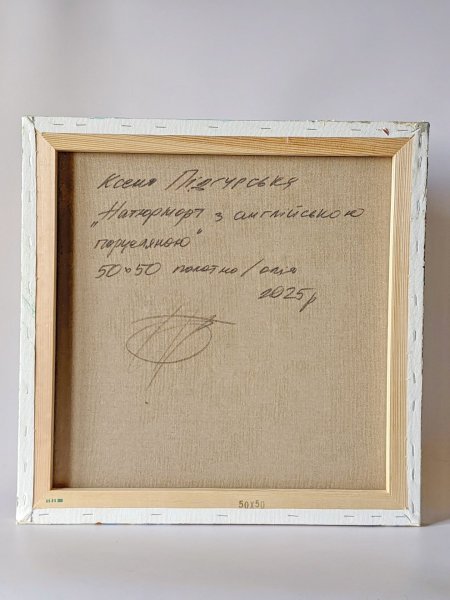 Ксенія Підгурська
„Натюрморт з англійською
порцеляною"
50×50 полотно/олія
2025р
50X50